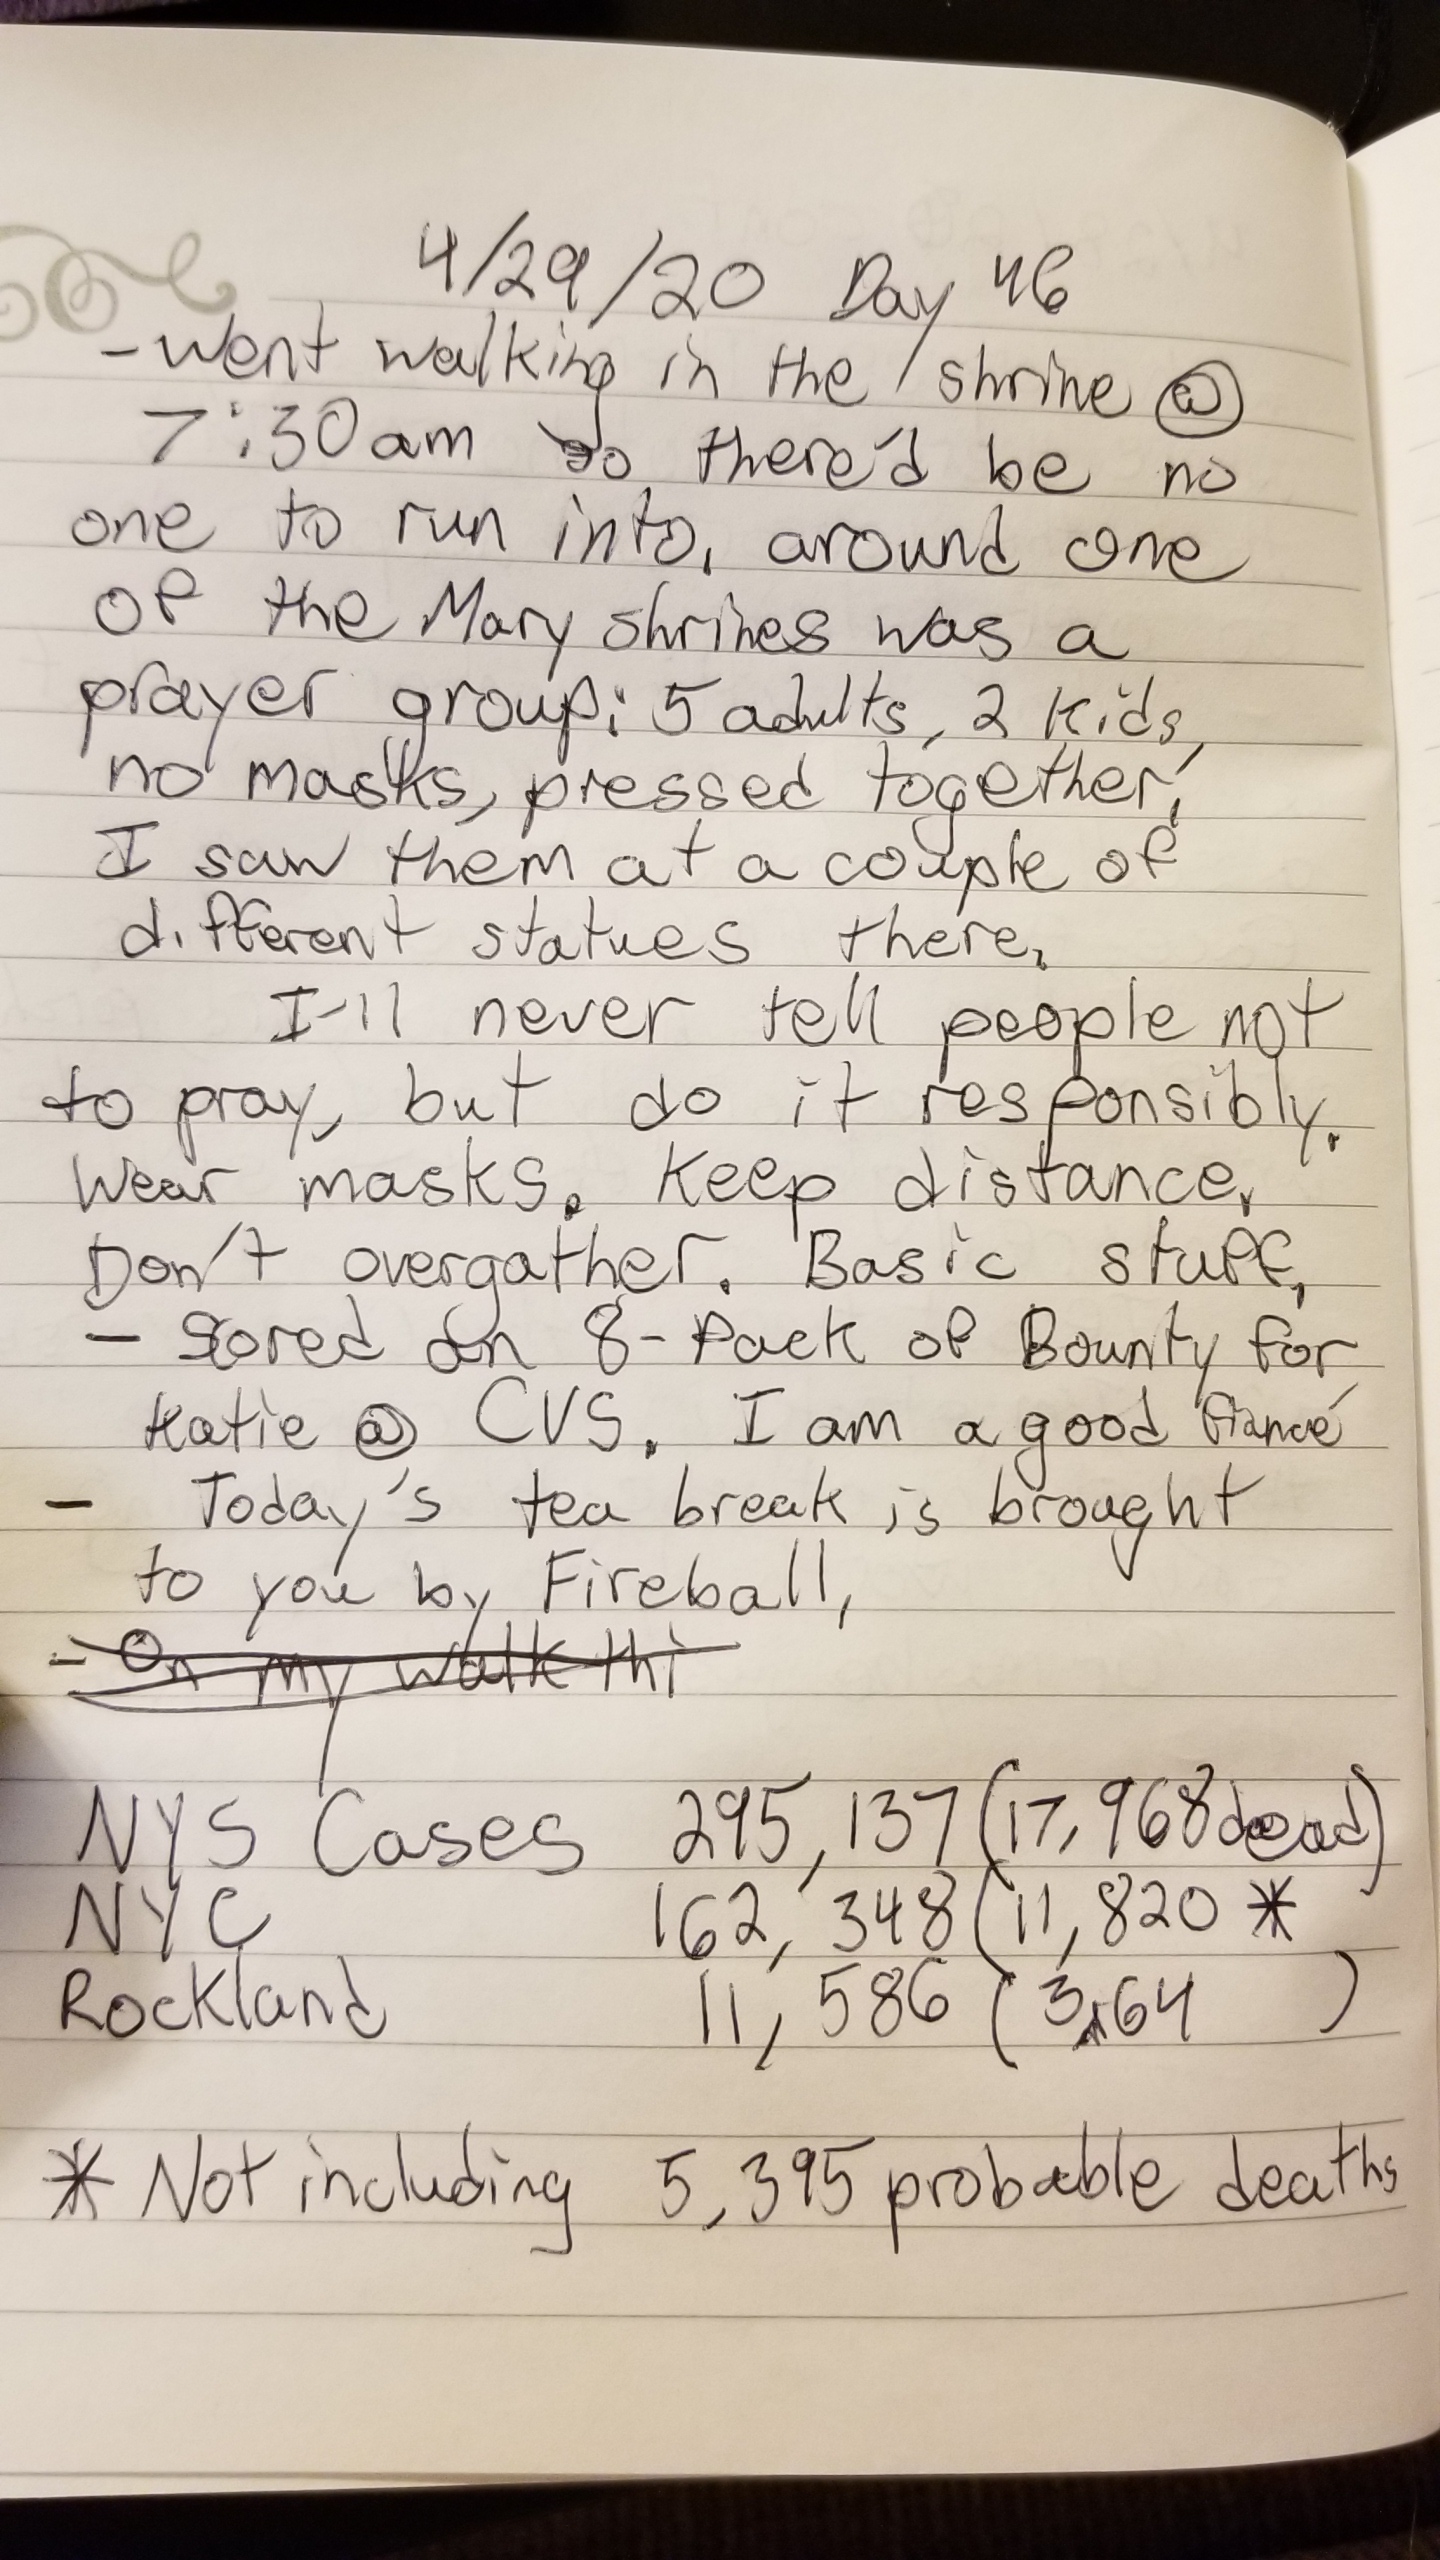 4/29/20 Day 46
- Went walking in the shrine @
7:30am so there'd be no
one to run into, around one
of the Mary shrines was a
prayer group: 5 adults, 2 kids,
no masks, pressed together.
I saw them at a couple of
different statues there.
I'll never tell people not
to pray, but do it responsibly.
Wear masks. Keep distance.
Don't overgather. Basic stuff.
- Scored an 8-Pack of Bounty for
Katie @ CVS. I am a good fiancé
- Today's tea break is brought
to you by Fireball.
- On my walk thi
NYS Cases 295,137 (17,968 dead)
NYC 162,348 (11,820 *
Rockland 11,586 (364 )
* Not including 5,395 probable deaths